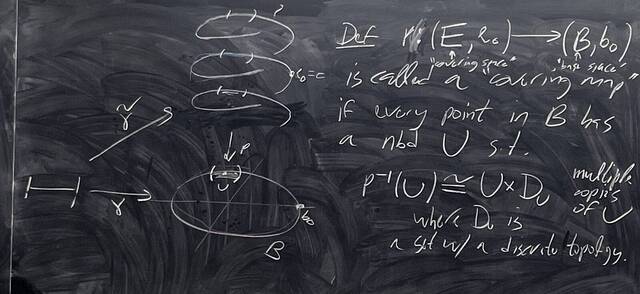 Def p: (E, e₀) → (B, b₀)
"covering space" "base space"
is called a "covering map"
if every point in B has
a nbd U s.t.
p⁻¹(U) ≅ U × D_U
multiple
copies
of U
where D_U is
a set w/ a discrete topology.
e₀ = c
γ̃
p
U
γ
b₀
B